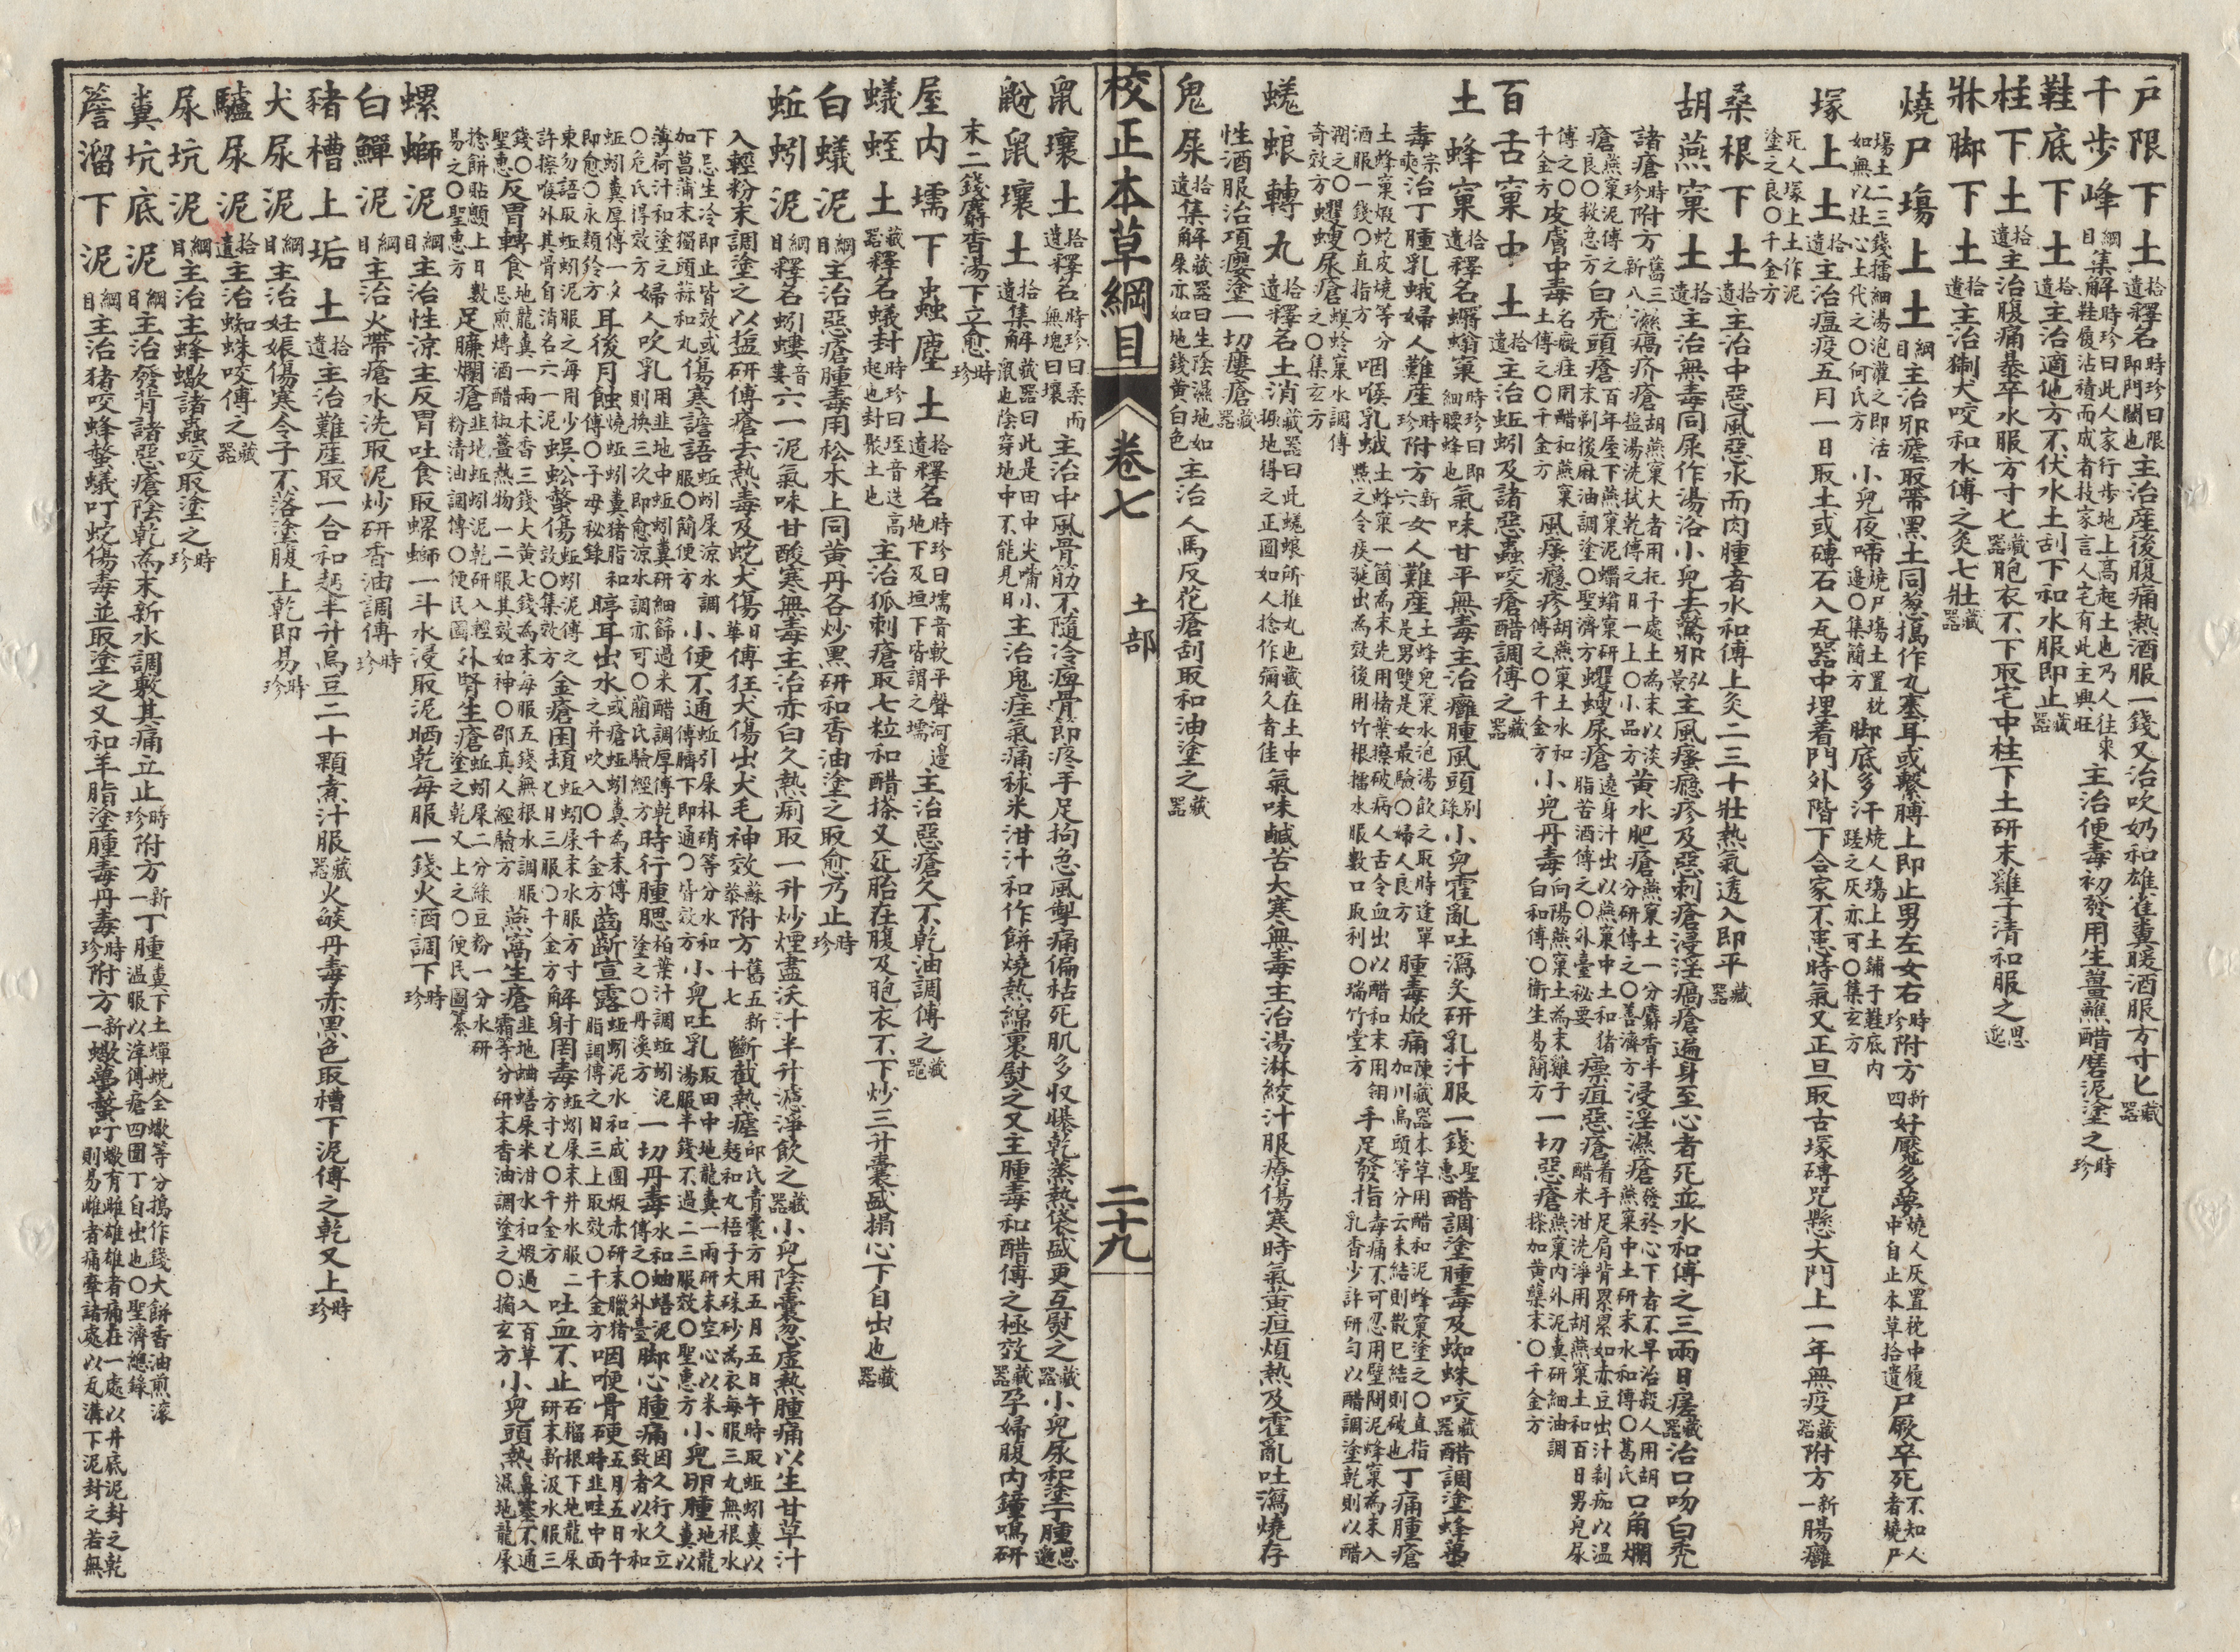 戶限下土拾遺釋名時珍曰限即門閾也主治產後腹痛熱酒服一錢又治吹奶和雄雀糞暖酒服方寸匕藏器
千步峰綱目集解時珍曰此人家行步地上高起土也乃人往來鞋履沾積而成者技家言人宅有此主興旺主治便毒初發用生薑蘸醋磨泥塗之時珍
鞋底下土拾遺主治適他方不伏水土刮下和水服即止藏器
柱下土拾遺主治腹痛暴卒水服方寸匕藏器胞衣不下取宅中柱下土研末雞子清和服之思邈
牀脚下土拾遺主治猘犬咬和水傅之灸七壯藏器
燒尸塲上土綱目主治邪瘧取帶黑土同葱搗作丸塞耳或繫膊上即止男左女右時珍附方新四好魘多夢燒人灰置枕中履中自止本草拾遺尸厥卒死不知人者燒尸
塲土二三錢擂細湯泡灌之即活如無以灶心土代之〇何氏方小兒夜啼燒尸塲土置枕邊〇集簡方脚底多汗燒人塲上土鋪于鞋底內蹉之灰亦可〇集玄方
塚上土拾遺主治瘟疫五月一日取土或磚石入瓦器中埋着門外階下合家不患時氣又正旦取古塚磚咒懸大門上一年無疫藏器附方新一腸癰
死人塚上土作泥塗之良〇千金方
桑根下土拾遺主治中惡風惡水而肉腫者水和傅上灸二三十壯熱氣透入即平藏器
胡燕窠土拾遺主治無毒同屎作湯浴小兒去驚邪弘景主風瘙癮疹及惡刺瘡浸淫瘑瘡遍身至心者死並水和傅之三兩日瘥藏器治口吻白禿
諸瘡時珍附方舊三新八濕瘑疥瘡胡燕窠大者用托子處土為末以淡鹽湯洗拭乾傅之日一上〇小品方黃水肥瘡燕窠土一分麝香半分研傅之〇善濟方浸淫濕瘡發於心下者不早治殺人用胡燕窠中土研末水和傅〇葛氏口角爛
瘡燕窠泥傅之良〇救急方白禿頭瘡百年屋下燕窠泥蠮螉窠研末剃後麻油調塗〇聖濟方蠼螋尿瘡遶身汁出以燕窠中土和猪脂苦酒傅之〇外臺秘要瘭疽惡瘡着手足肩背累累如赤豆出汁剝痂以溫醋米泔洗淨用胡燕窠土和百日男兒屎
傅之〇千金方皮膚中毒名癥疰用醋和燕窠土傅之〇千金方風瘙癮疹胡燕窠土水和傅之〇千金方小兒丹毒向陽燕窠土為末雞子白和傅〇衛生易簡方一切惡瘡燕窠內外泥糞研細油調搽加黃蘗末〇千金方
百舌窠中土拾遺主治蚯蚓及諸惡蟲咬瘡醋調傅之藏器
土蜂窠拾遺釋名蠮螉窠時珍曰即細腰蜂也氣味甘平無毒主治癰腫風頭別錄小兒霍亂吐瀉炙研乳汁服一錢聖惠醋調塗腫毒及蜘蛛咬藏器醋調塗蜂蠆
毒宗奭治丁腫乳蛾婦人難產時珍附方新六女人難產土蜂兒窠水泡湯飲之取時逢單是男雙是女最驗〇婦人良方腫毒焮痛陳藏器本草用醋和泥蜂窠塗之〇直指加川烏頭等分云未結則散已結則破也丁痛腫瘡
土蜂窠煅蛇皮燒等分酒服一錢〇直指方咽喉乳蛾土蜂窠一箇為末先用楮葉擦破病人舌令血出以醋和末用翎點之令痰涎出為效後用竹根擂水服數口取利〇瑞竹堂方手足發指毒痛不可忍用壁間泥蜂窠為末入乳香少許研勻以醋調塗乾則以醋
潤之〇奇效方蠼螋尿瘡蟢蛉窠水調傅之〇集玄方
蜣蜋轉丸拾遺釋名土消藏器曰此蜣蜋所推丸也藏在土中掘地得之正圓如人捻作彌久者佳氣味鹹苦大寒無毒主治湯淋絞汁服療傷寒時氣黃疸煩熱及霍亂吐瀉燒存
性酒服治項癭塗一切瘻瘡藏器
鬼屎拾遺集解藏器曰生陰濕地如屎亦如地錢黃白色主治人馬反花瘡刮取和油塗之藏器
校正本草綱目 卷七 土部 二十九
鼠壤土拾遺釋名時珍曰柔而無塊曰壤主治中風骨筋不隨冷痹骨節疼手足拘急風掣痛偏枯死肌多收曝乾蒸熱袋盛更互熨之藏器小兒尿和塗丁腫思邈
鼢鼠壤土拾遺集解藏器曰此是田中尖嘴小鼠也陰穿地中不能見日主治鬼疰氣痛秫米泔汁和作餅燒熱綿裹熨之又主腫毒和醋傅之極效藏器孕婦腹內鐘鳴研
末二錢麝香湯下立愈時珍
屋內壖下蟲塵土拾遺釋名時珍曰壖音軟平聲河邊地下及垣下皆謂之壖主治惡瘡久不乾油調傅之藏器
蟻蛭土藏器釋名蟻封時珍曰垤音迭高起也封聚土也主治狐刺瘡取七粒和醋搽又死胎在腹及胞衣不下炒三升囊盛搨心下自出也藏器
白蟻泥綱目主治惡瘡腫毒用松木上同黃丹各炒黑研和香油塗之取愈乃止時珍
蚯蚓泥綱目釋名蚓螻音婁六一泥氣味甘酸寒無毒主治赤白久熱痢取一升炒煙盡沃汁半升濾淨飲之藏器小兒陰囊忽虛熱腫痛以生甘草汁
入輕粉末調塗之以鹽研傅瘡去熱毒及蛇犬傷日華傅狂犬傷出犬毛神效蘇恭附方舊五新十七斷截熱瘧邱氏青囊方用五月五日午時取蚯蚓糞以麪和丸梧子大硃砂為衣每服三丸無根水
下忌生冷即止皆效或加菖蒲末獨頭蒜和丸傷寒譫語蚯蚓屎涼水調服〇簡便方小便不通蚯引屎朴硝等分水和傅臍下即通〇皆效方小兒吐乳取田中地龍糞一兩研末空心以米湯服半錢不過二三服效〇聖惠方小兒卵腫地龍糞以
薄荷汁和塗之〇危氏得效方婦人吹乳用韭地中蚯蚓糞研細篩過米醋調厚傅乾則換三次即愈涼水調亦可〇藺氏驗經方時行腫腮柏葉汁調蚯蚓泥塗之〇丹溪方一切丹毒水和蚰蟮泥傅之〇外臺脚心腫痛因久行久立致者以水和
蚯蚓糞厚傅一夕即愈〇永類鈐方耳後月蝕燒蚯蚓糞猪脂和傅〇子母秘錄聤耳出水或瘡蚯蚓糞為末傅之并吹入〇千金方齒齗宣露蚯蚓泥水和成團煅赤研末臘猪脂調傅之日三上取效〇千金方咽喉骨硬五月五日午時韭畦中面
東勿語取蚯蚓泥每用少許擦喉外其骨自消名六一泥蜈蚣螫傷蚯蚓泥傅之效〇集效方金瘡困頓蚯蚓屎末水服方寸匕日三服〇千金方解射罔毒蚯蚓屎末井水服二方寸匕〇千金方吐血不止石榴根下地龍屎研末新汲水服三
錢〇聖惠反胃轉食地龍糞一兩木香三錢大黃七錢為末每服五錢無根水調服忌煎煿酒醋椒薑熱物一二服其效如神〇邵真人經驗方燕窩生瘡韭地蛐蟮屎米泔水和煅過入百草霜等分研末香油調塗之〇摘玄方小兒頭熱鼻塞不通濕地龍屎
捻餅貼顖上日數易之〇聖惠方足臁爛瘡韭地蚯蚓泥乾研入輕粉清油調傅〇便民圖外腎生瘡蚯蚓屎二分綠豆粉一分水研塗之乾又上之〇便民圖纂
螺螄泥綱目主治性涼主反胃吐食取螺螄一斗水浸取泥晒乾每服一錢火酒調下時珍
白鱓泥綱目主治火帶瘡水洗取泥炒研香油調傅時珍
猪槽上垢土拾遺主治難產取一合和麪半升烏豆二十顆煮汁服藏器火燄丹毒赤黑色取槽下泥傅之乾又上時珍
犬尿泥綱目主治妊娠傷寒令子不落塗腹上乾即易時珍
驢尿泥拾遺主治蜘蛛咬傅之藏器
尿坑泥綱目主治主蜂蠍諸蟲咬取塗之時珍
糞坑底泥綱目主治發背諸惡瘡陰乾為末新水調敷其痛立止時珍附方新一丁腫糞下土蟬蛻全蠍等分搗作錢大餅香油煎滾溫服以滓傅瘡四圍丁自出也〇聖濟總錄
簷溜下泥綱目主治猪咬蜂螫蟻叮蛇傷毒並取塗之又和羊脂塗腫毒丹毒時珍附方新一蠍蠆螫叮蠍有雌雄雄者痛在一處以井底泥封之乾則易雌者痛牽諸處以瓦溝下泥封之若無